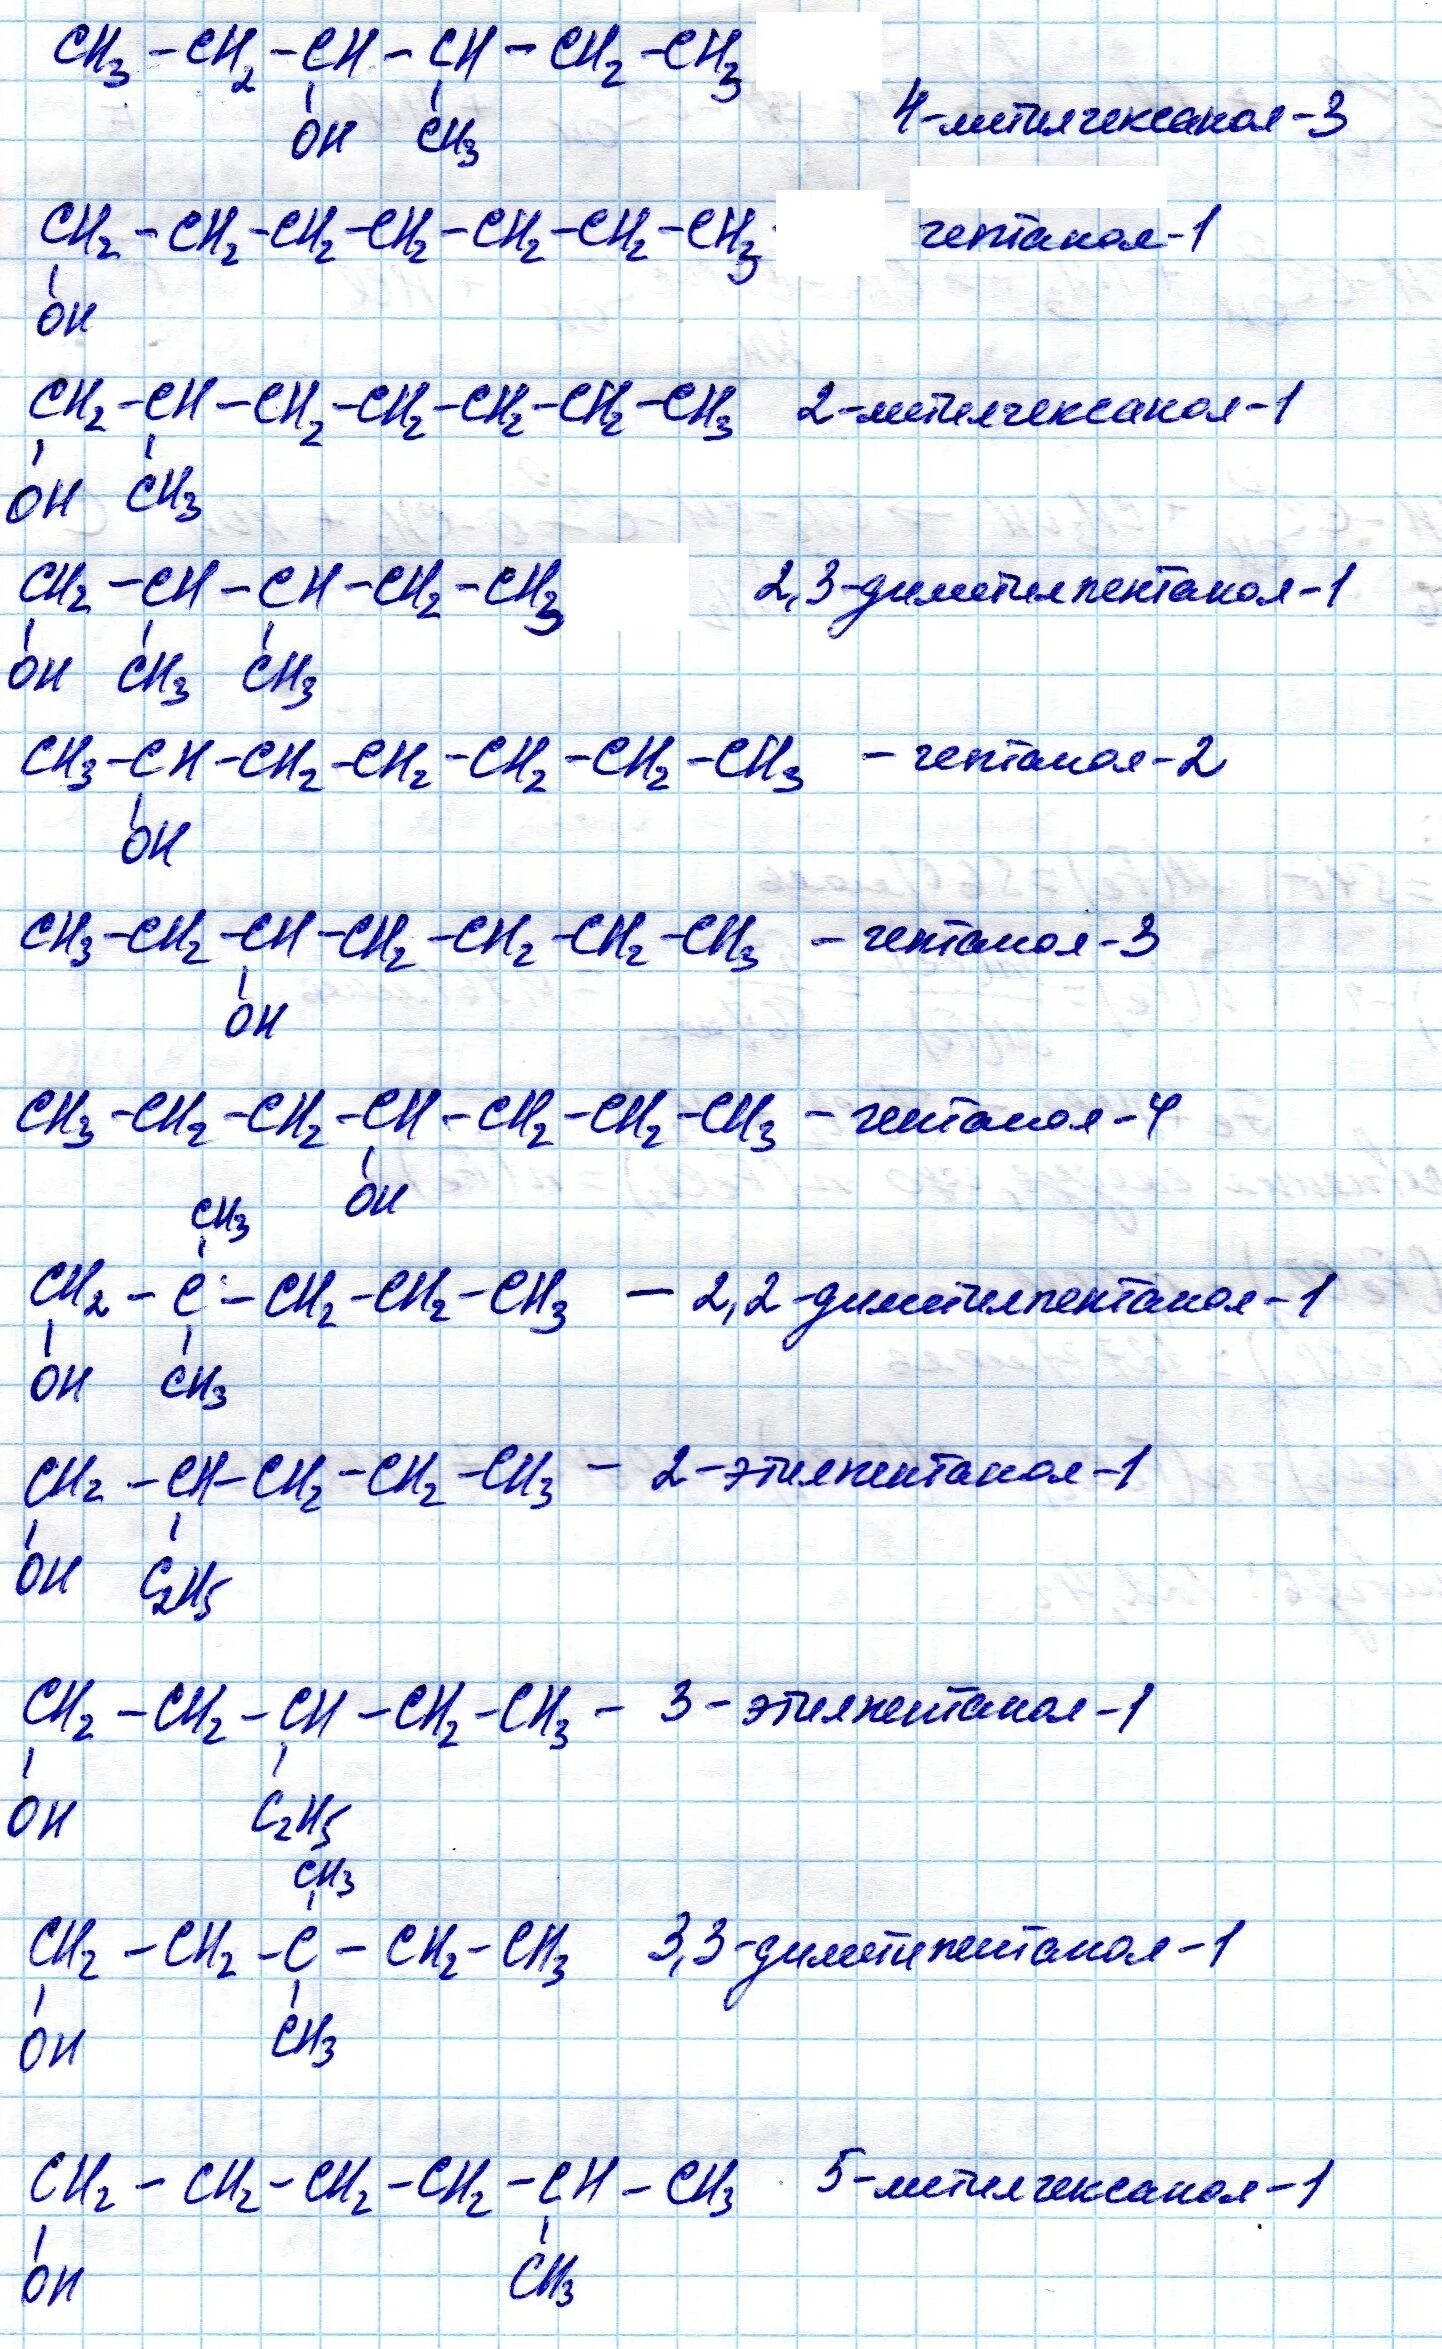 CH3 – CH2 – CH – CH – CH2 – CH3
OH CH3
4-метилгексанол-3
CH2 – CH2 – CH2 – CH2 – CH2 – CH2 – CH3 гептанол-1
OH
CH2 – CH – CH2 – CH2 – CH2 – CH2 – CH3 2-метилгексанол-1
OH CH3
CH2 – CH – CH – CH2 – CH3 2,3-диметилпентанол-1
OH CH3 CH3
CH3 – CH – CH2 – CH2 – CH2 – CH2 – CH3 – гептанол-2
OH
CH3 – CH2 – CH – CH2 – CH2 – CH2 – CH3 – гептанол-3
OH
CH3 – CH2 – CH2 – CH – CH2 – CH2 – CH3 – гептанол-4
OH
CH3
CH2 – C – CH2 – CH2 – CH3 – 2,2-диметилпентанол-1
OH CH3
CH2 – CH – CH2 – CH2 – CH3 – 2-этилпентанол-1
OH C2H5
CH2 – CH2 – CH – CH2 – CH3 – 3-этилпентанол-1
OH C2H5
CH3
CH2 – CH2 – C – CH2 – CH3 3,3-диметипентанол-1
OH CH3
CH2 – CH2 – CH2 – CH2 – CH – CH3 5-метилгексанол-1
OH CH3